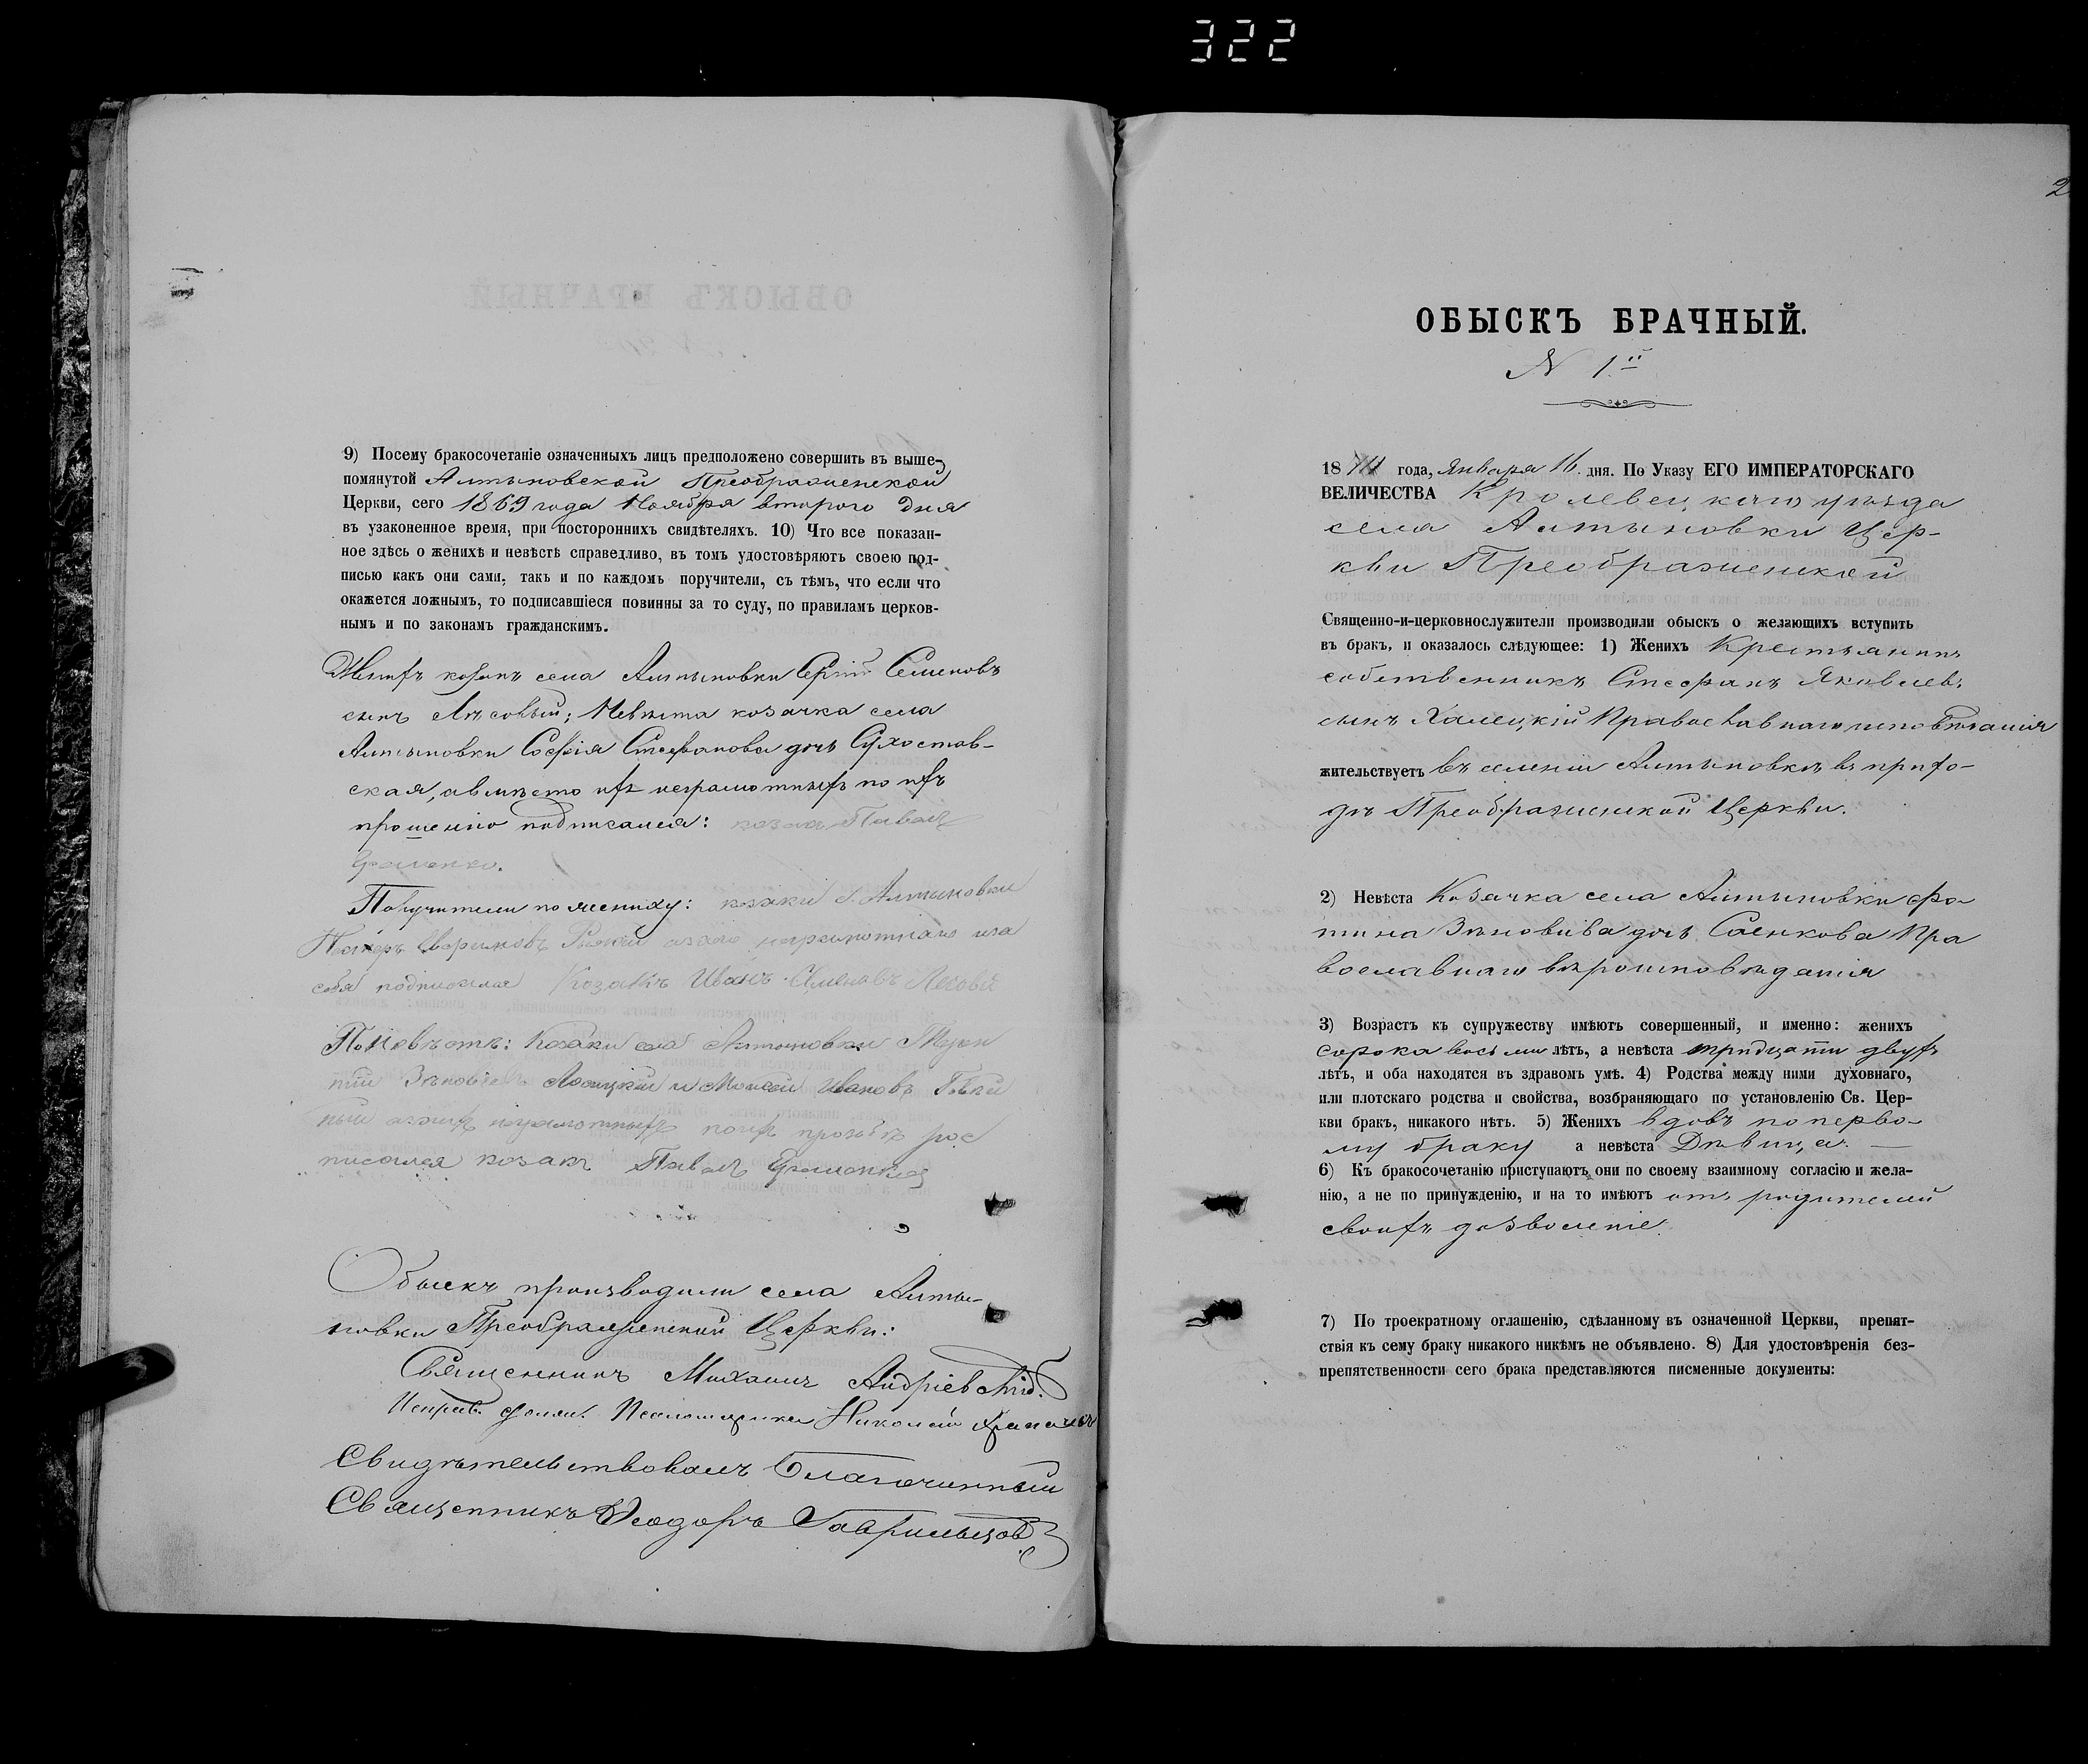 322
9) Посему бракосочетаніе означенныхъ лицъ предположено совершить въ выше-
помянутой Алтыновской Преображенской
Церкви, сего 1869 года Ноября второго дня
въ узаконенное время, при постороннихъ свидѣтеляхъ. 10) Что все показан-
ное здѣсь о женихѣ и невѣстѣ справедливо, въ томъ удостовѣряютъ своею под-
писью какъ они сами, такъ и по каждомъ поручители, съ тѣмъ, что если что
окажется ложнымъ, то подписавшіеся повинны за то суду, по правиламъ церков-
нымъ и по законамъ гражданскимъ.
Женихъ козакъ села Алтыновки Сергій Семеновъ
сынъ Лѣсовый; Невѣста козачка села
Алтыновки Софія Стефанова дочь Сухостав-
ская, а вмѣсто ихъ неграмотныхъ по ихъ
прошенію подписался: козакъ Павелъ
Ерменко.
Поручители по жениху: козаки с. Алтыновки
неграмотнаго и за
себя подписался Козакъ Иванъ Семеновъ Лесовй
По Невѣстѣ: Козаки села Алтыновки
Зѣновіевъ и Моисей Ивановъ
неграмотныхъ поихъ прозьбѣ рос
писался козакъ Павелъ
Обыскъ производили села Алты-
новки Преображенской Церкви:
Священникъ Михаилъ
Исправ. должн. Псаломщика Николай
Свидѣтельствовалъ Благочинный
Священникъ Ѳеодоръ Гаврильцов
2
ОБЫСКЪ БРАЧНЫЙ.
N 1й
18 года, Января 16. дня. По Указу ЕГО ИМПЕРАТОРСКАГО
ВЕЛИЧЕСТВА Кролевецкаго уѣзда
села Алтыновки Цер-
кви Преображенской
Священно-и-церковнослужители производили обыскъ о желающихъ вступить
въ бракъ, и оказалось слѣдующее: 1) Женихъ Крестьянинъ
собственникъ Стефанъ Яковлевъ
сынъ Халецкій Православнаго исповѣданія
жительствуетъ въ селеніи Алтыновкѣ въ прихо-
дѣ Преображенской Церкви.
2) Невѣста Козачка села Алтыновки Фо-
тина Зѣновіева дочь Саенкова Пра
вославнаго вѣроисповѣданія
3) Возрастъ къ супружеству имѣютъ совершенный, и именно: женихъ
сорока восьми лѣтъ, а невѣста тридцати двухъ
лѣтъ, и оба находятся въ здравомъ умѣ. 4) Родства между ними духовнаго,
или плотскаго родства и свойства, возбраняющаго по установленію Св. Цер-
кви бракъ, никакого нѣтъ. 5) Женихъ вдовъ по перво-
му браку а невѣста Дѣвица.
6) Къ бракосочетанію приступаютъ они по своему взаимному согласію и жела-
нію, а не по принужденію, и на то имѣютъ отъ родителей
своихъ дозволеніе.
7) По троекратному оглашенію, сдѣланному въ означенной Церкви, препят-
ствія къ сему браку никакого никѣмъ не объявлено. 8) Для удостовѣренія без-
препятственности сего брака представляются писменные документы: